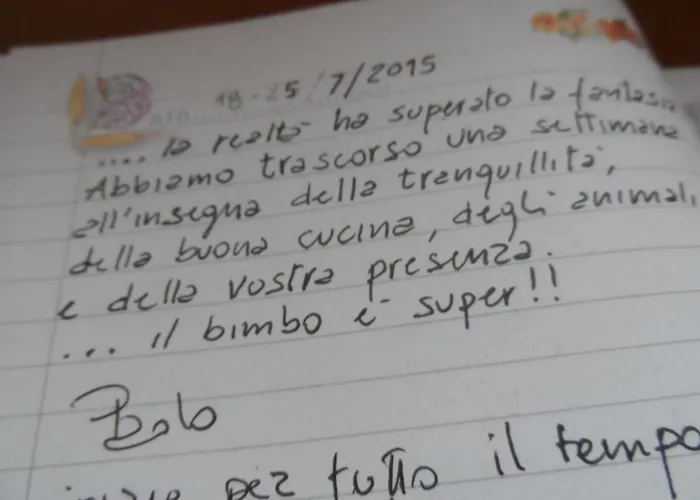 18-25/7/2015
.... la realtà ha superato la fantasia
Abbiamo trascorso una settimana
all'insegna della tranquillità,
della buona cucina, degli animali,
e della vostra presenza.
... il bimbo è super!!
Paolo
per tutto il tempo